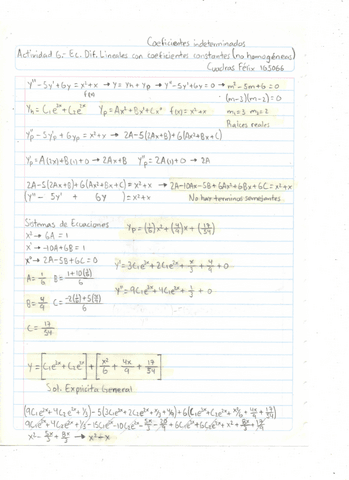 Coeficientes indeterminados
Actividad 6: Ec. Dif. Lineales con coeficientes constantes (no homogéneas)
Cuadras Félix 163066
y''-5y'+6y = x²+x → y = yh + yp → y''-5y'+6y=0 → m²-5m+6=0
f(x) (m-3)(m-2)=0
yh = C₁e³ˣ + C₂e²ˣ yp = Ax²+Bx+C f(x)=x²+x m₁=3 m₂=2
Raices reales
yp''-5yp'+6yp = x²+x → 2A-5(2Ax+B)+6(Ax²+Bx+C)
yp' = A(2x)+B(1)+0 → 2Ax+B yp'' = 2A(1)+0 → 2A
2A-5(2Ax+B)+6(Ax²+Bx+C) = x²+x → 2A-10Ax-5B+6Ax²+6Bx+6C=x²+x
(y'' - 5y' + 6y) = x²+x No hay terminos semejantes
Sistemas de Ecuaciones yp = (1/6)x² + (4/9)x + (17/54)
x² → 6A = 1
x' → -10A+6B = 1 y' = 3C₁e³ˣ + 2C₂e²ˣ + x/3 + 4/9 + 0
x⁰ → 2A-5B+6C = 0
y'' = 9C₁e³ˣ + 4C₂e²ˣ + 1/3 + 0
A = 1/6 B = 1+10(1/6)/6
B = 4/9 C = -2(1/6)+5(4/9)/6
C = 17/54
y = [C₁e³ˣ + C₂e²ˣ] + [x²/6 + 4x/9 + 17/54]
Sol. Explicita General
(9C₁e³ˣ+4C₂e²ˣ+1/3)-5(3C₁e³ˣ+2C₂e²ˣ+x/3+4/9)+6(C₁e³ˣ+C₂e²ˣ+x²/6+4x/9+17/54)
9C₁e³ˣ+4C₂e²ˣ+1/3-15C₁e³ˣ-10C₂e²ˣ-5x/3-20/9+6C₁e³ˣ+6C₂e²ˣ+x²+8x/3+17/9
x²-5x/3+8x/3 → x²+x